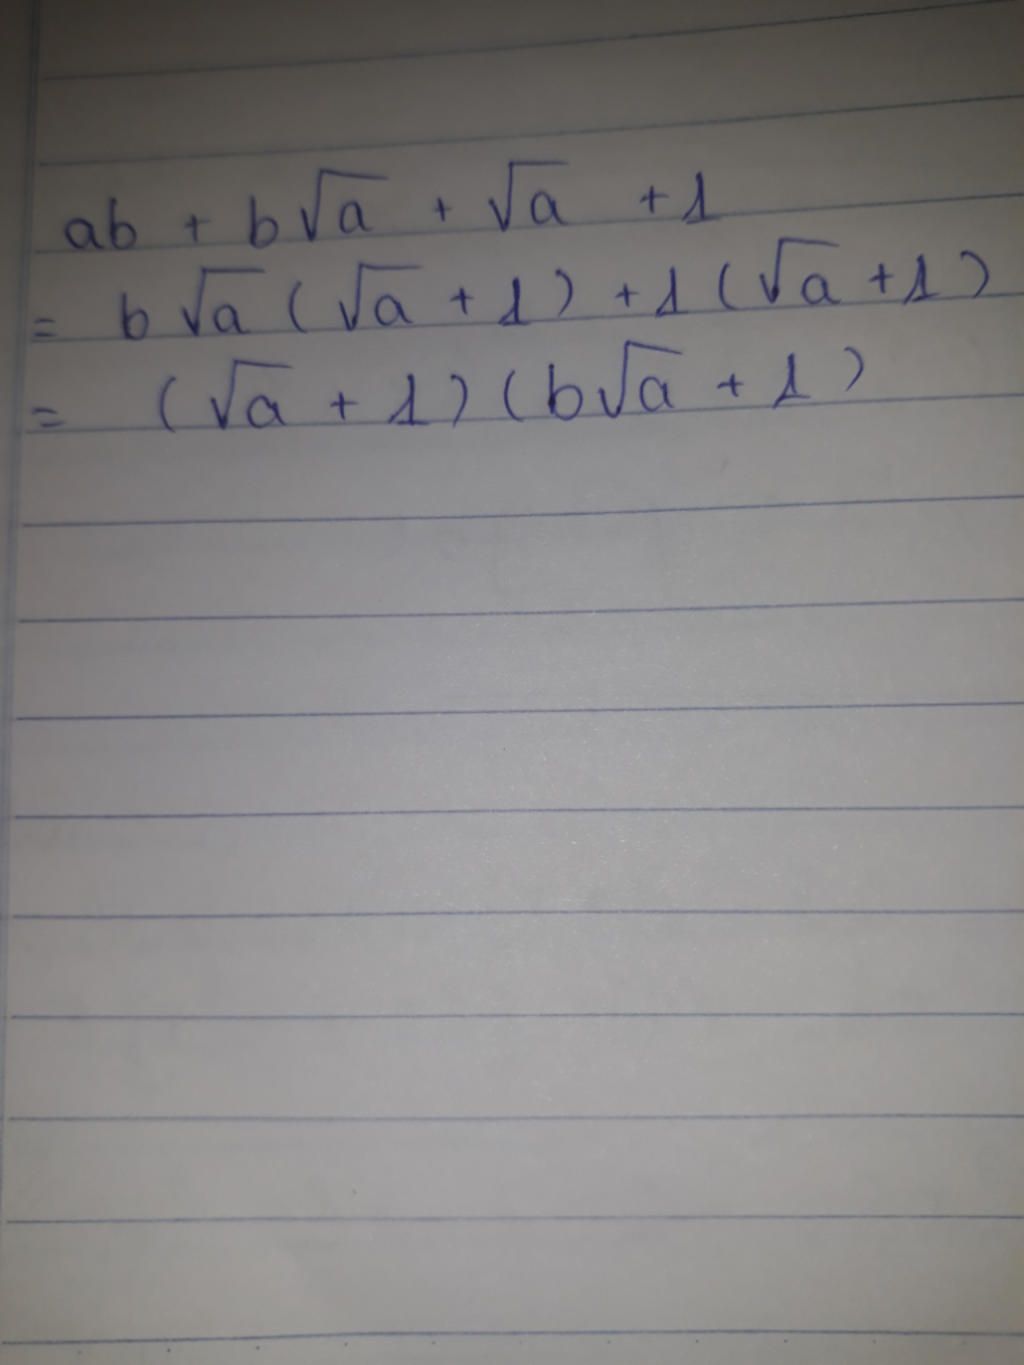 ab + b√a + √a + 1
= b√a (√a + 1) + 1 (√a + 1)
= (√a + 1) (b√a + 1)